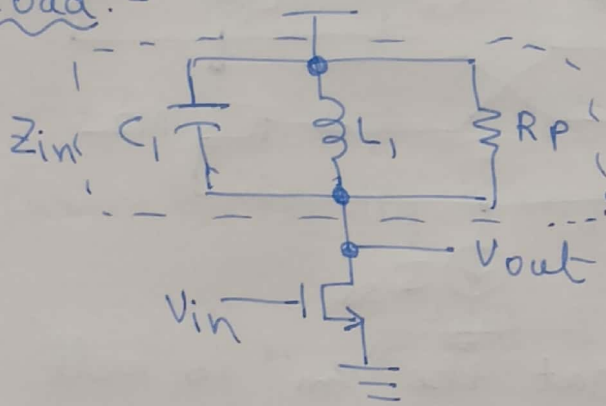 Zin C1 L1 Rp
Vout
Vin